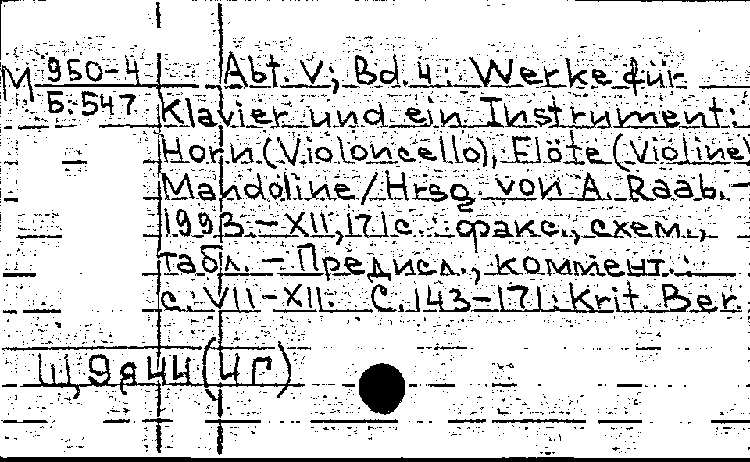 М 950-4
Б.547
Abt. V; Bd. 4: Werke für
Klavier und ein Instrument:
Horn (Violoncello), Flöte (Violine)
Mandoline / Hrsg. von A. Raab. –
1993. – XII, 171 с.: факс., схем.,
табл. – Предисл., коммент.:
с. VII–XII. С. 143–171: Krit. Ber.
Щ9я44(4Г)